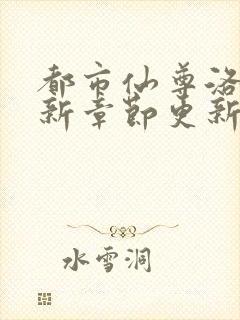 都市仙尊洛
新章节更新
水雪洞